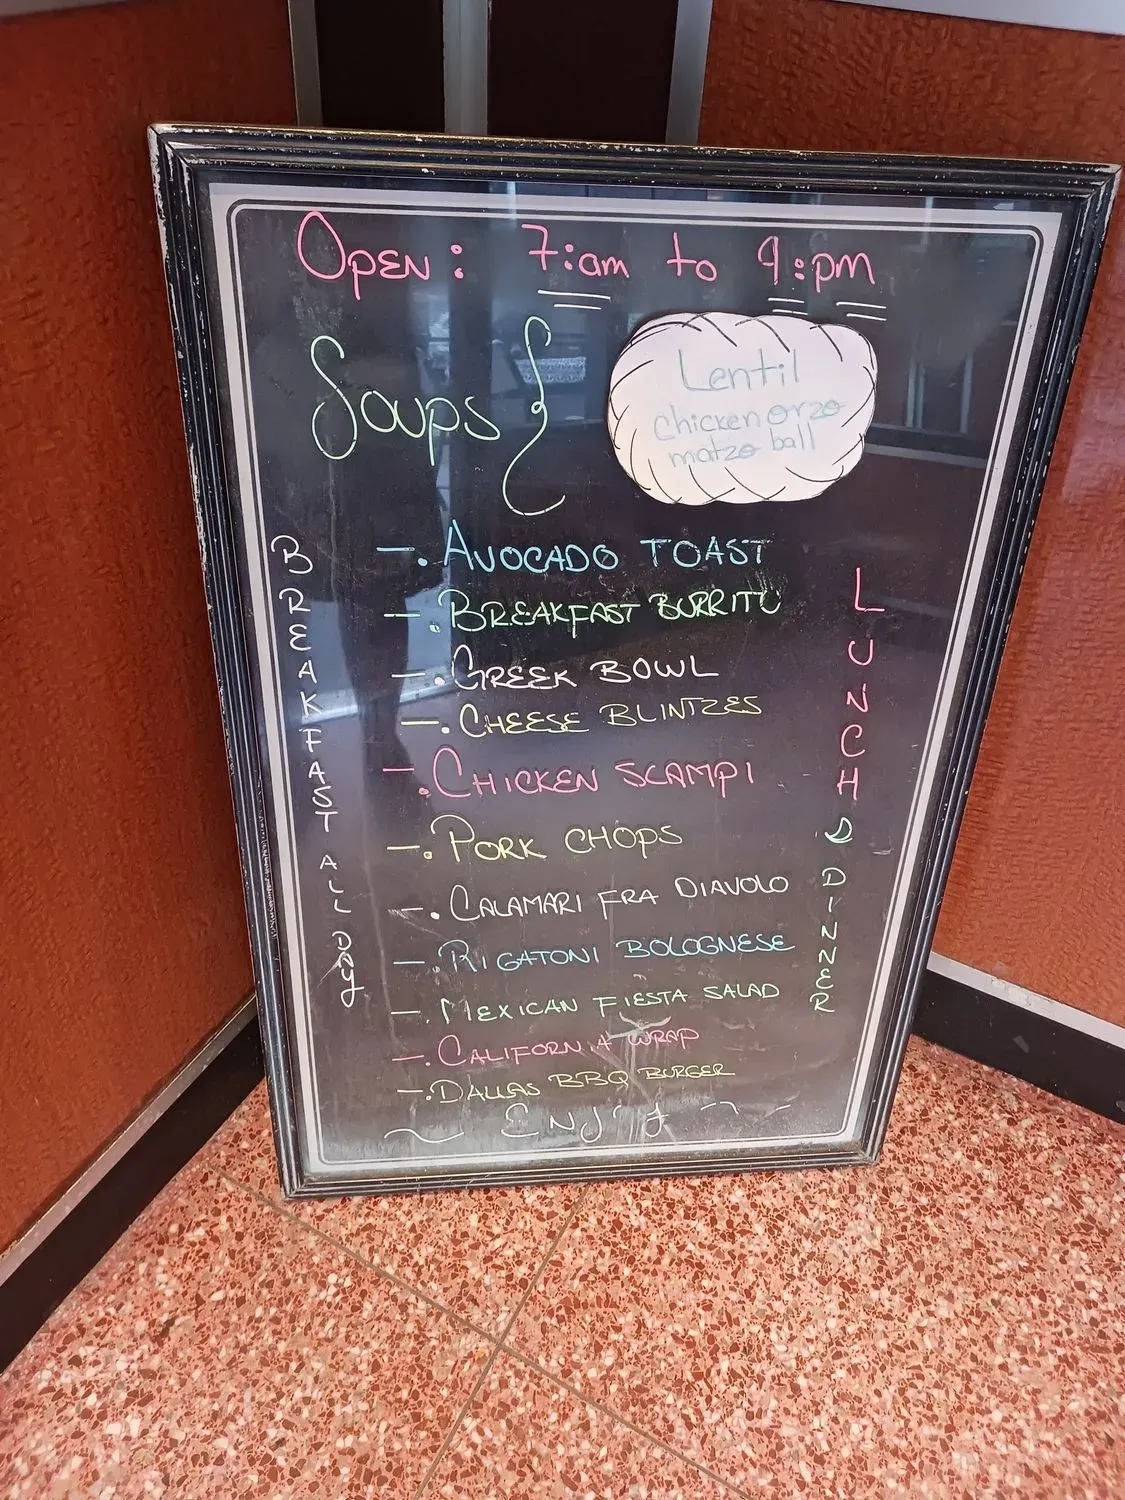 Open: 7:am to 9:pm
Soups {
Lentil
chicken orzo
matzo ball
BREAKFAST ALL DAY
-. AVOCADO TOAST
-. BREAKFAST BURRITO
-. GREEK BOWL
-. CHEESE BLINTZES
-. CHICKEN SCAMPI
-. PORK CHOPS
-. CALAMARI FRA DIAVOLO
-. RIGATONI BOLOGNESE
-. MEXICAN FIESTA SALAD
-. CALIFORNIA WRAP
-. DALLAS BBQ BURGER
LUNCH & DINNER
~ ENJOY ~ -